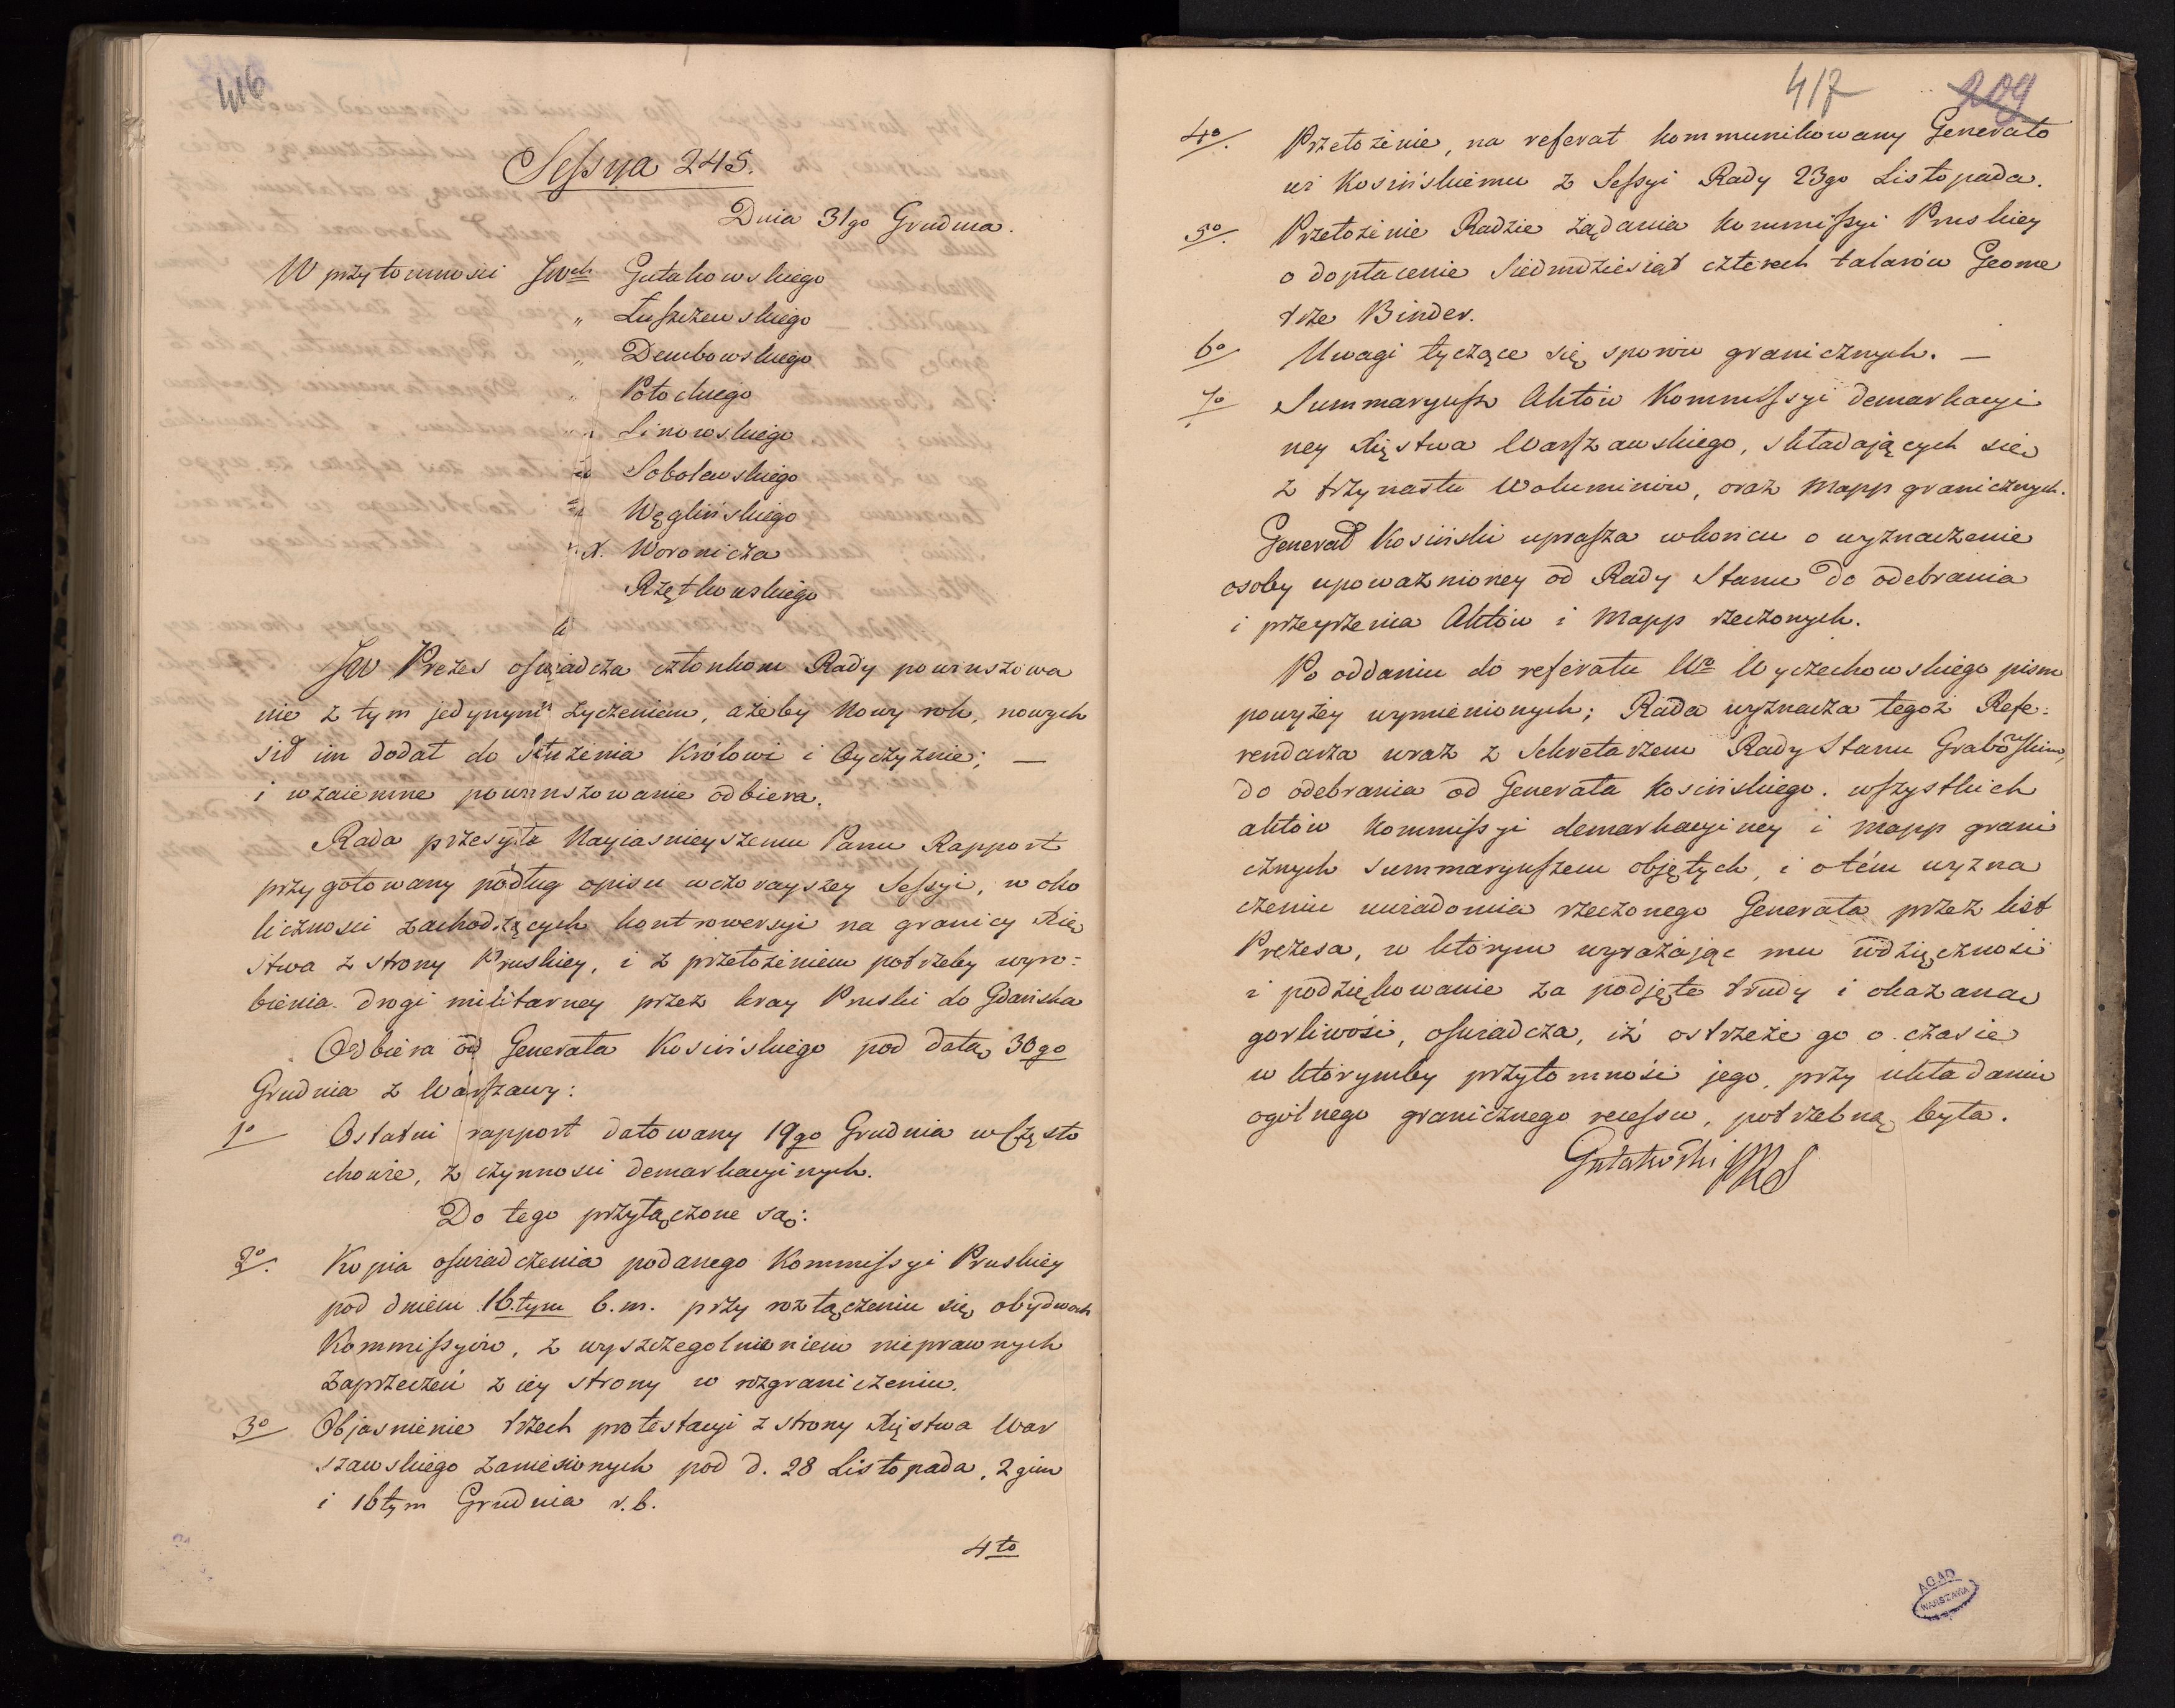 416
Sessya 245.
Dnia 31go Grudnia.
W przytomności JWch Gutakowskiego
" Łuszczewskiego
" Dembowskiego
" Potockiego
" Linowskiego
" Sobolewskiego
" Węglińskiego
X. Woronicza
Rzętkowskiego
JW Prezes oświadcza członkom Rady powinszowa
nie z tym jedynym życzeniem, ażeby Nowy rok, nowych
sił im dodał do służenia Królowi i Oyczyznie; —
i wzaiemne powinszowanie odbiera.
Rada przesyła Nayiasnieyszemu Panu Rapport
przygotowany podług opisu wczorayszey Sessyi, w oko
liczności zachodzących kontrowersyi na granicy Xię
stwa z strony Pruskiey, i z przełożeniem potrzeby wyro=
bienia drogi militarney przez kray Pruski do Gdańska
Odbiera od Generała Kosińskiego pod datą 30go
Grudnia z Warszawy:
1o Ostatni rapport datowany 19go Grudnia w Często
chowie, z czynności demarkacyinych.
Do tego przyłączone są:
2o. Kopia oświadczenia podanego Kommissyi Pruskiey
pod dniem 16.tym b.m. przy rozłączeniu się obydwoch
Kommissyów, z wyszczegolnieniem nieprawnych
zaprzeczeń z iey strony w rozgraniczeniu.
3o Objasnienie trzech protestacyi z strony Xięstwa War
szawskiego zaniesionych pod d. 28 Listopada, 2gim
i 16tym Grudnia r.b.
4to
417 209
4o. Przełożenie, na referat kommunikowany Generało
wi Kosińskiemu z Sessyi Rady 23go Listopada.
5o. Przełożenie Radzie żądania Kommissyi Pruskiey
o dopłacenie Siedmdziesiąt czterech talarów Geome
trze Binder.
6o Uwagi tyczące się sporów granicznych. —
7o Summaryusz Aktów Kommissyi demarkacyi
ney Xięstwa Warszawskiego, składających się
z trzynastu Woluminów, oraz Mapp granicznych.
Generał Kosiński uprasza wkońcu o wyznaczenie
osoby upoważnioney od Rady Stanu do odebrania
i przeyrzenia Aktów i Mapp rzeczonych.
Po oddaniu do referatu Wo Wyczechowskiego pism
powyżey wymienionych; Rada wyznacza tegoż Refe=
rendarza wraz z Sekretarzem Rady Stanu Grabowskim,
do odebrania od Generała Kosińskiego wszystkich
aktów Kommissyi demarkacyiney i Mapp grani
cznych summaryuszem objętych, i o tém wyzna
czeniu uwiadomia rzeczonego Generała przez list
Prezesa, w którym wyrażając mu wdzięczność
i podziękowanie za podjęte trudy i okazaną
gorliwość, oświadcza, iż ostrzeże go o czasie
w którymby przytomność jego, przy układaniu
ogólnego granicznego recessu, potrzebną była.
Gutakowski PRS
AGAD
WARSZAWA